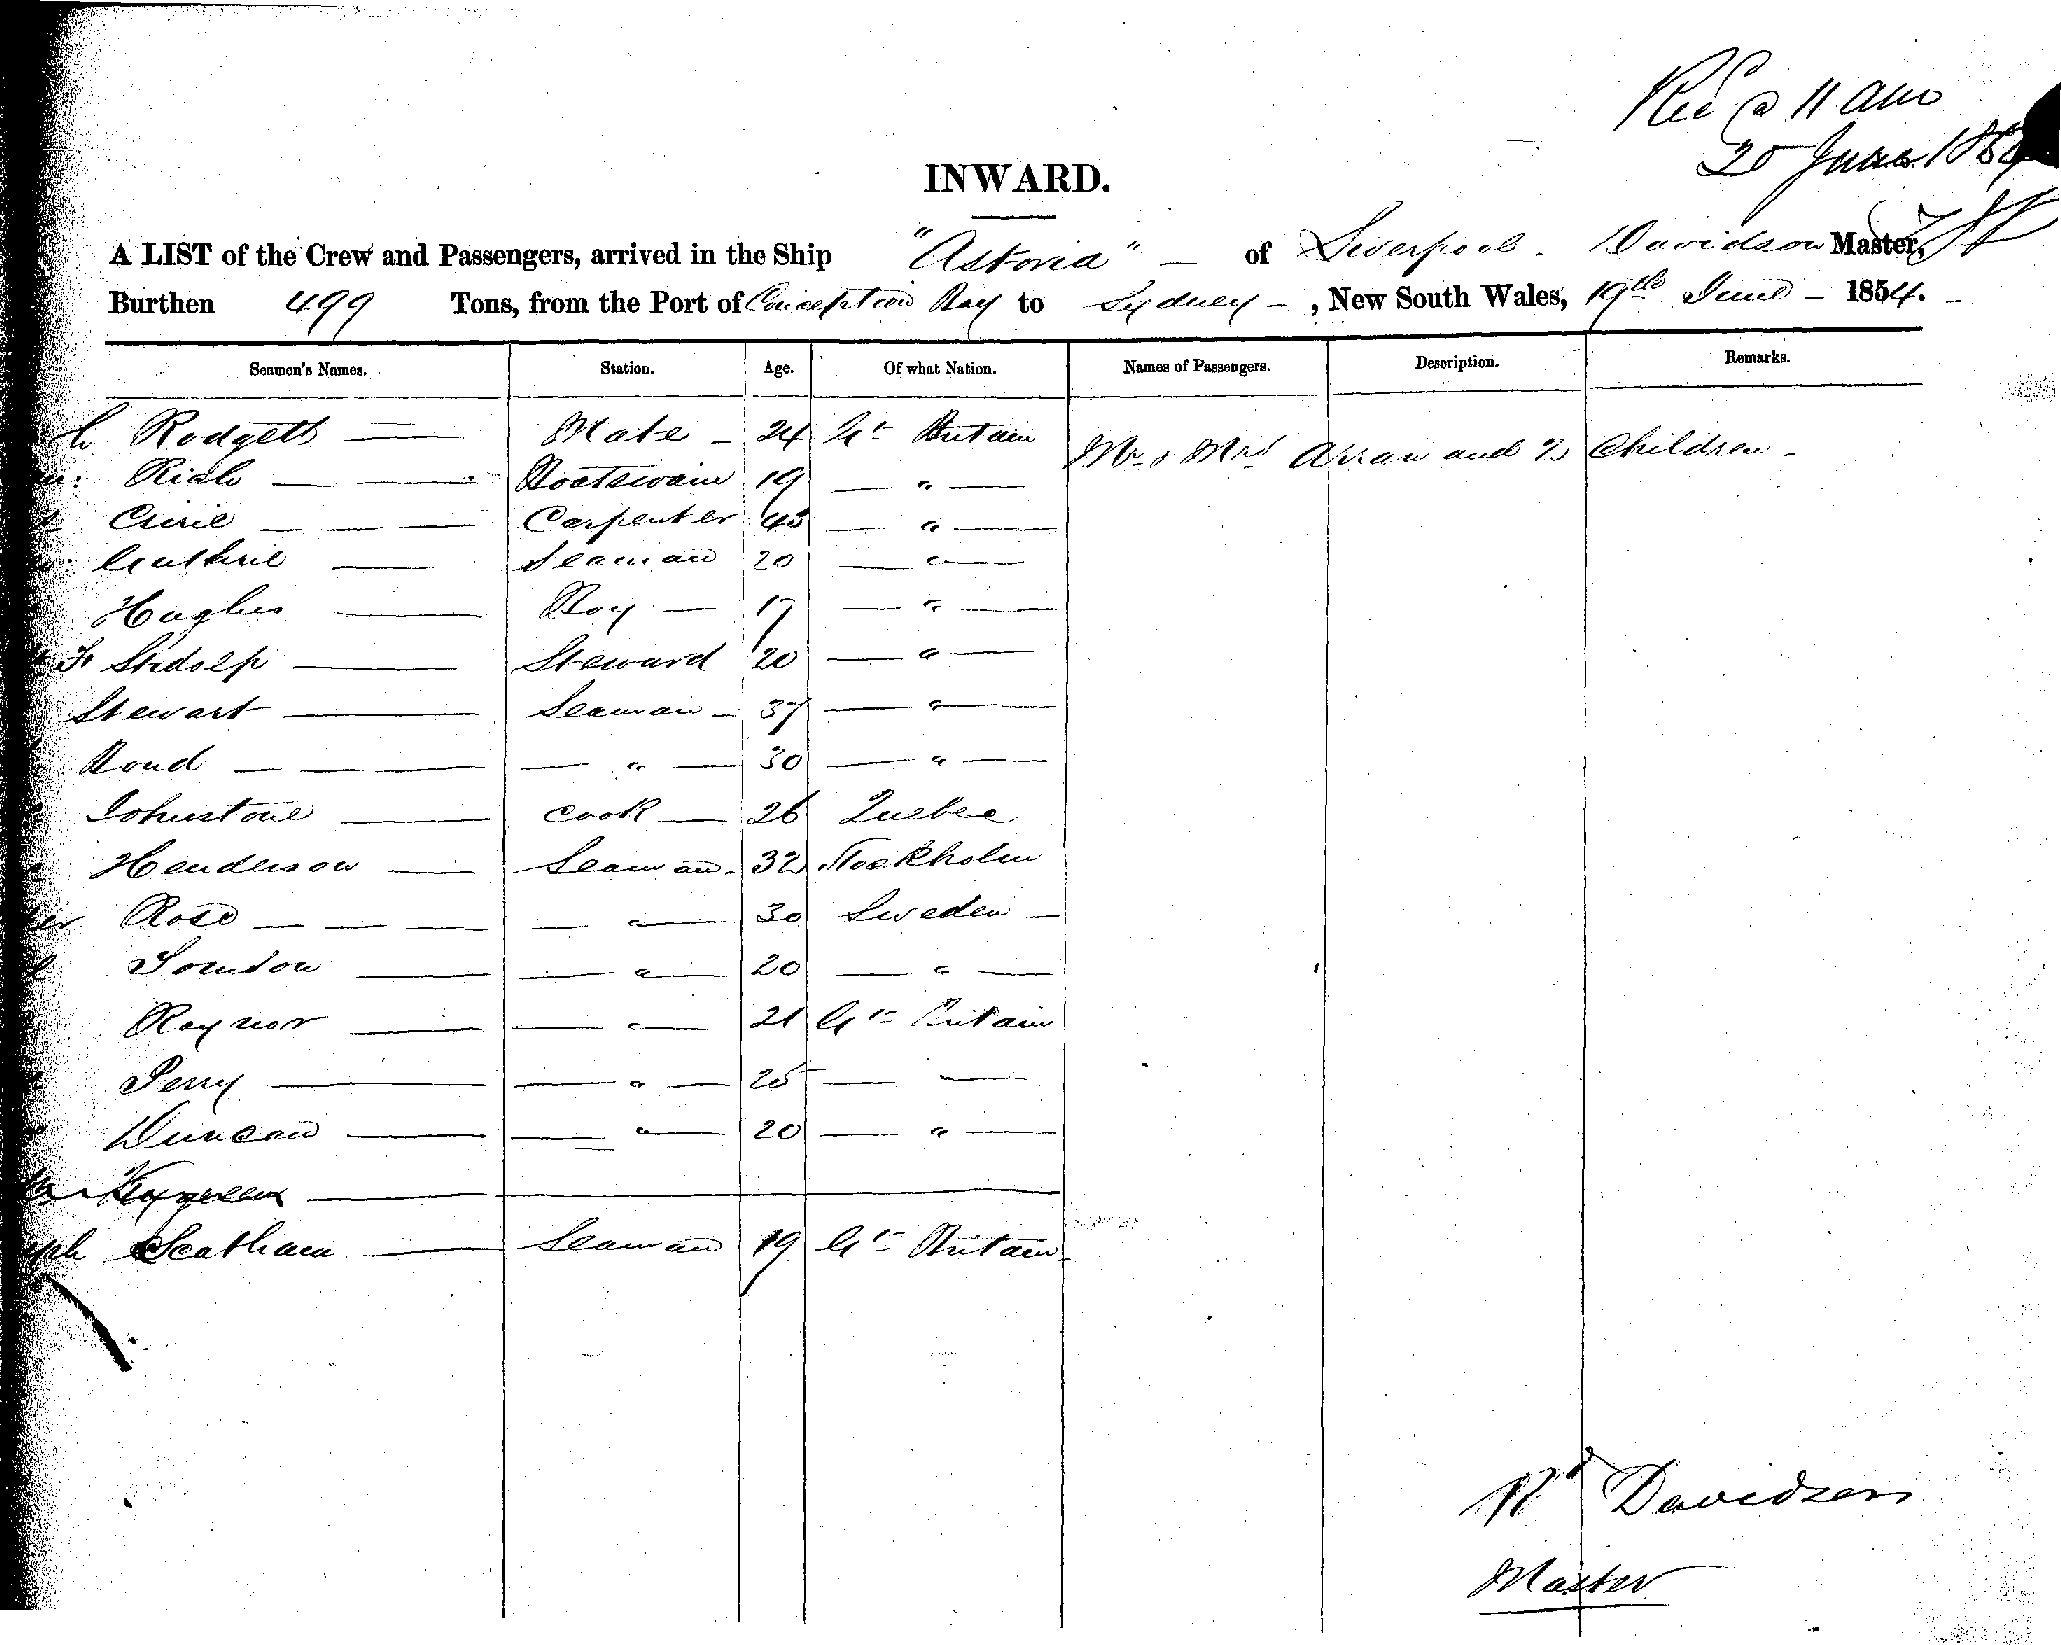 Rec @ 11 am
20 June 1854
INWARD.
A LIST of the Crew and Passengers, arrived in the Ship "Astoria" — of Liverpool. Davidson Master,
Burthen 499 Tons, from the Port of Conception Bay to Sydney — , New South Wales, 19th June — 1854. —
Seamen's Names. Station. Age. Of what Nation. Names of Passengers. Description. Remarks.
Rodgett — Mate — 24 Gt Britain
Mr & Mrs Arran and 2 Children —
Rich — — Boatswain 19 — " —
Carpenter 43 — " —
Guthrie — Seaman 20 — " —
Hughes — Boy — 17 — " —
Steward 20 — " —
Stewart — Seaman — 37 — " —
Bond — — — — " — 30 — " —
Johnstone — Cook — 26 Quebec
Henderson — Seaman 32 Stockholm
Rose — — — — — " — 30 Sweden —
— " — 20 — " —
Raynor — — " — 21 Gt Britain
Perry — — " — 25 — —
Duncan — — " — 20 — " —
Scatham — Seaman 19 Gt Britain
Rd Davidson
Master